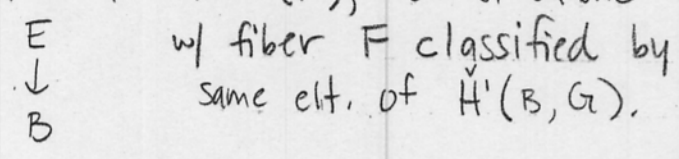 E w/ fiber F classified by
↓ same elt. of Ȟ'(B, G).
B